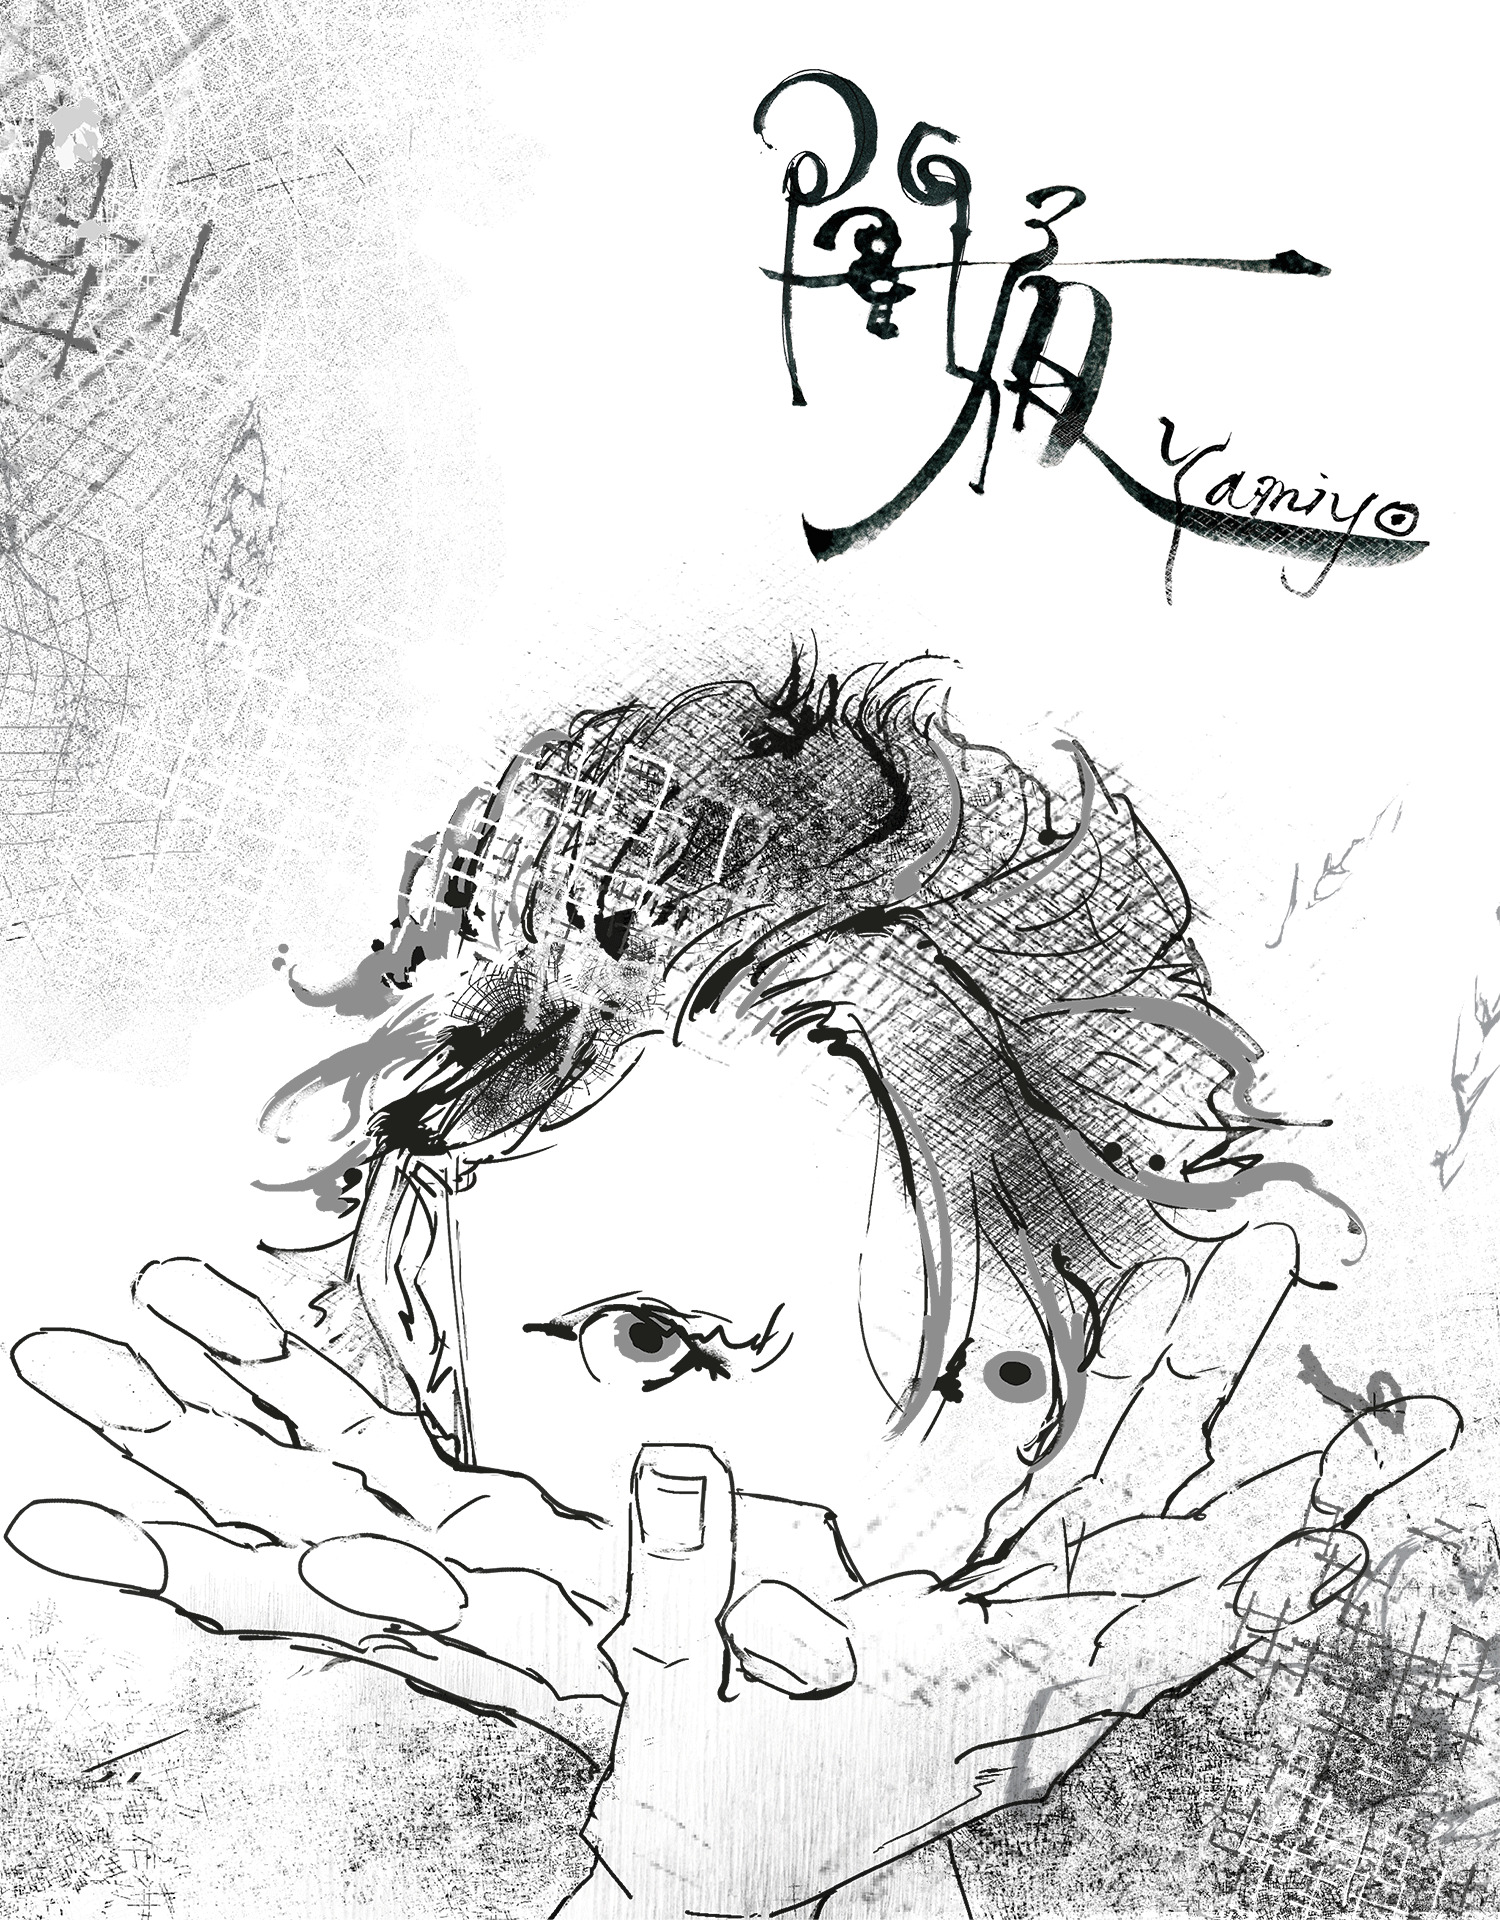 闇夜
Yamiyo